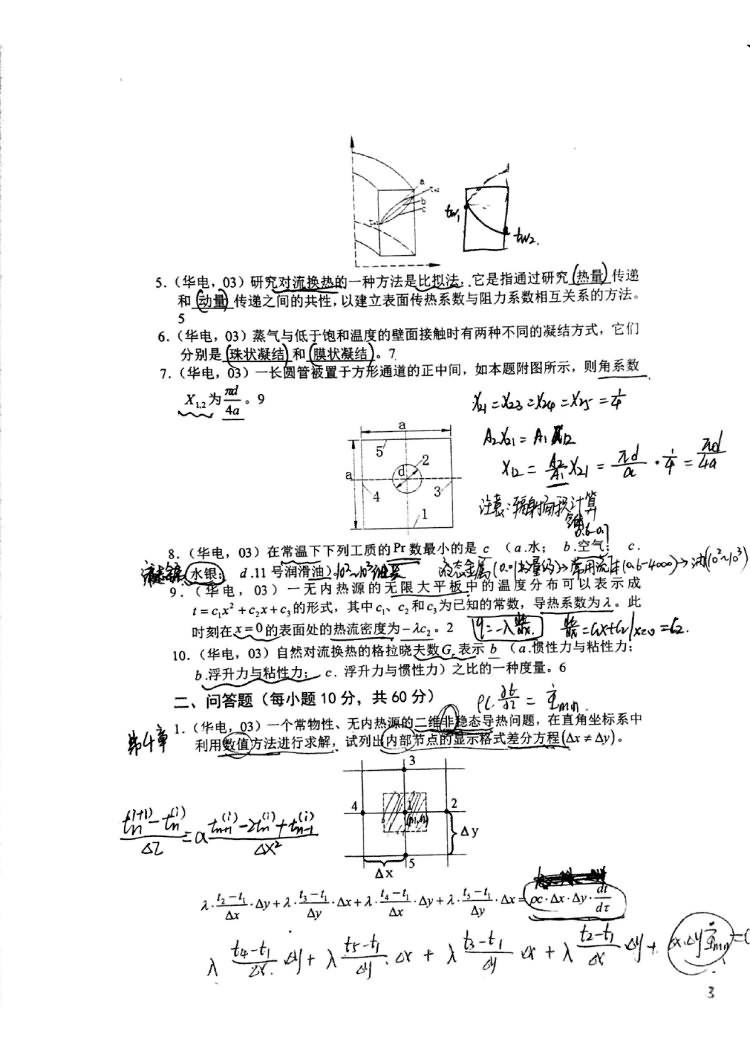 a
b
c
tw1
tw2.
5.（华电，03）研究对流换热的一种方法是比拟法；它是指通过研究（热量）传递
和（动量）传递之间的共性，以建立表面传热系数与阻力系数相互关系的方法。
5
6.（华电，03）蒸气与低于饱和温度的壁面接触时有两种不同的凝结方式，它们
分别是（珠状凝结）和（膜状凝结）。7
7.（华电，03）一长圆管被置于方形通道的正中间，如本题附图所示，则角系数
X1,2为 πd/4a 。9
X21=X23=X24=X25=1/4
A2X21=A1X12
X12=A2/A1 X21=πd/a·1/4=πd/4a
a
5
2
a
d
4
3
1
注意:辐射面积计算
8.（华电，03）在常温下下列工质的Pr数最小的是 c （a.水； b.空气； c.
水银； d.11号润滑油）
液态金属(0.01数量级)→常用流体(0.6-4000)→油(10²~10³)
9.（华电，03）一无内热源的无限大平板中的温度分布可以表示成
t=c₁x²+c₂x+c₃的形式，其中c₁、c₂和c₃为已知的常数，导热系数为λ。此
时刻在x=0的表面处的热流密度为−λc₂。2
10.（华电，03）自然对流换热的格拉晓夫数Gr表示 b （a.惯性力与粘性力；
b.浮升力与粘性力； c. 浮升力与惯性力）之比的一种度量。6
二、问答题（每小题10分，共60分）
第4章
1.（华电，03）一个常物性、无内热源的二维非稳态导热问题，在直角坐标系中
利用数值方法进行求解，试列出内部节点的显示格式差分方程(Δx≠Δy)。
3
4
1
2
(m,n)
Δy
5
Δx
tn(i+1)-tn(i)/Δτ=a tn+1(i)-2tn(i)+tn-1(i)/Δx²
λ·(t₂−t₁)/Δx·Δy+λ·(t₃−t₁)/Δy·Δx+λ·(t₄−t₁)/Δx·Δy+λ·(t₅−t₁)/Δy·Δx=ρc·Δx·Δy·dt/dτ
λ (t4-t1)/Δx·Δy+λ (t5-t1)/Δy·Δx+λ (t3-t1)/Δy Δx+λ (t2-t1)/Δx·Δy+
3